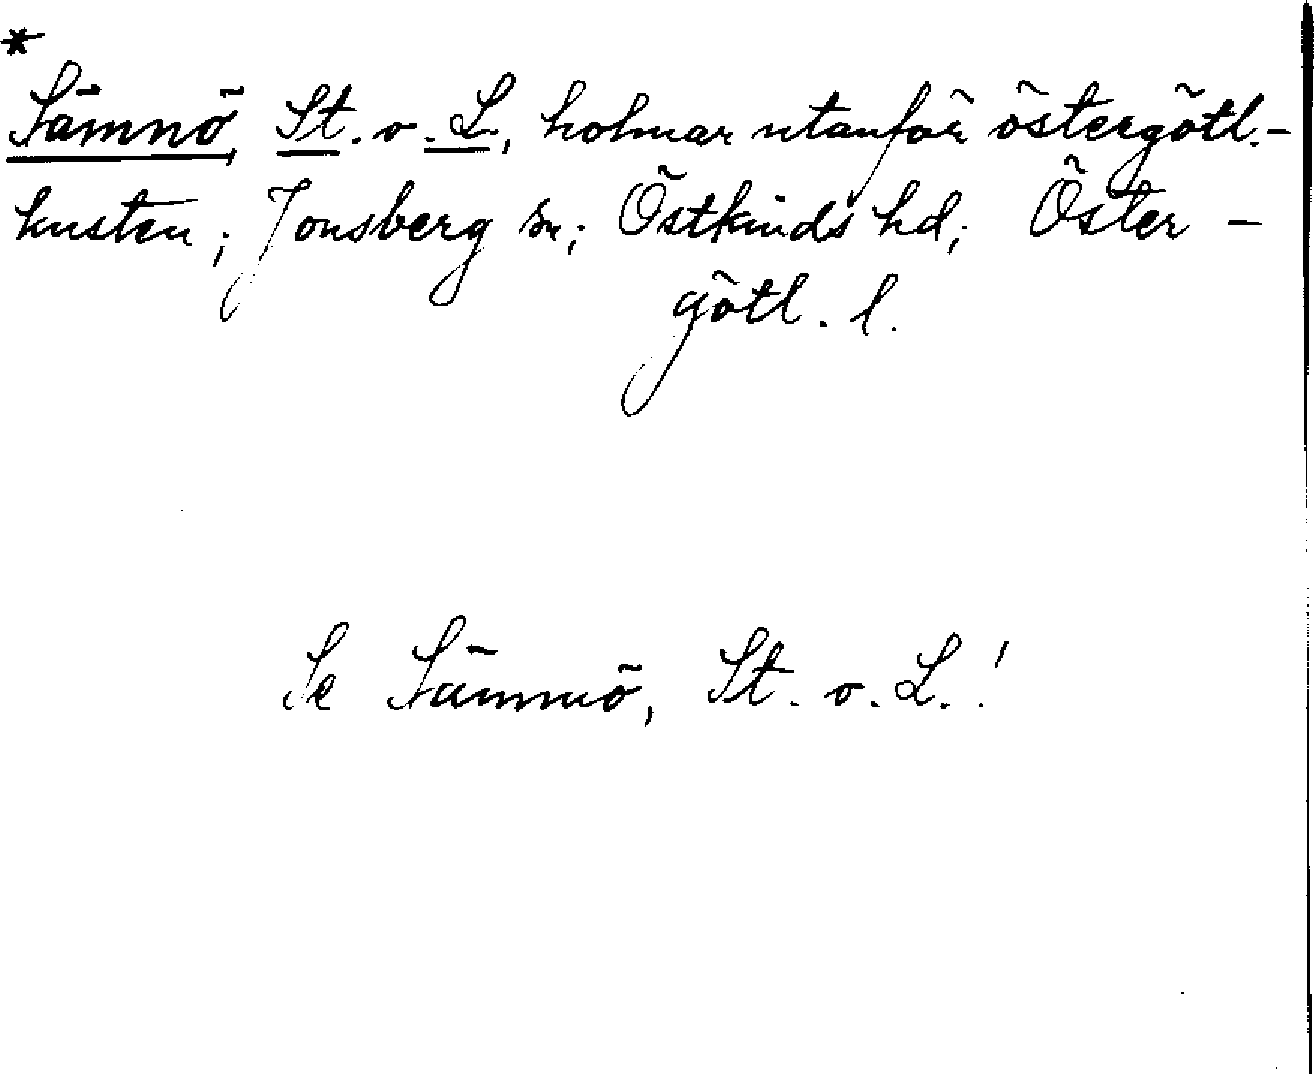 *
Sämnö, St. o. L., holmar utanför östergötl.-
kusten; Jonsberg sn; Östkinds hd; Öster-
götl. l.
Se Sämnö, St. o. L.!